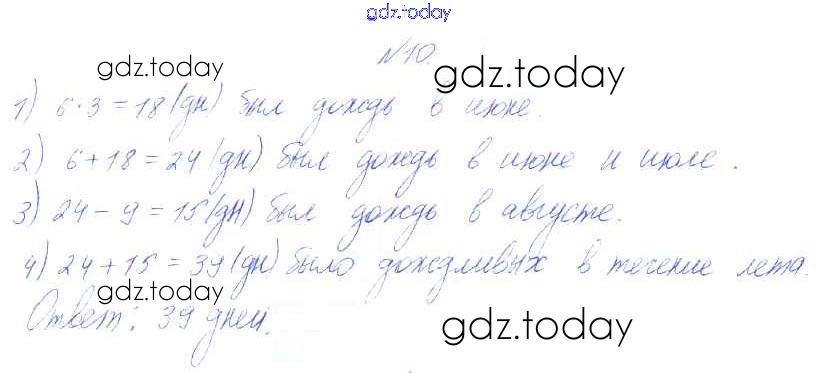 gdz.today
№10.
gdz.today gdz.today
1) 6·3=18(дн) был дождь в июне.
2) 6+18=24(дн) был дождь в июне и июле.
3) 24-9=15(дн) был дождь в августе.
4) 24+15=39(дн) было дождливых в течение лета.
gdz.today
Ответ: 39 дней.
gdz.today